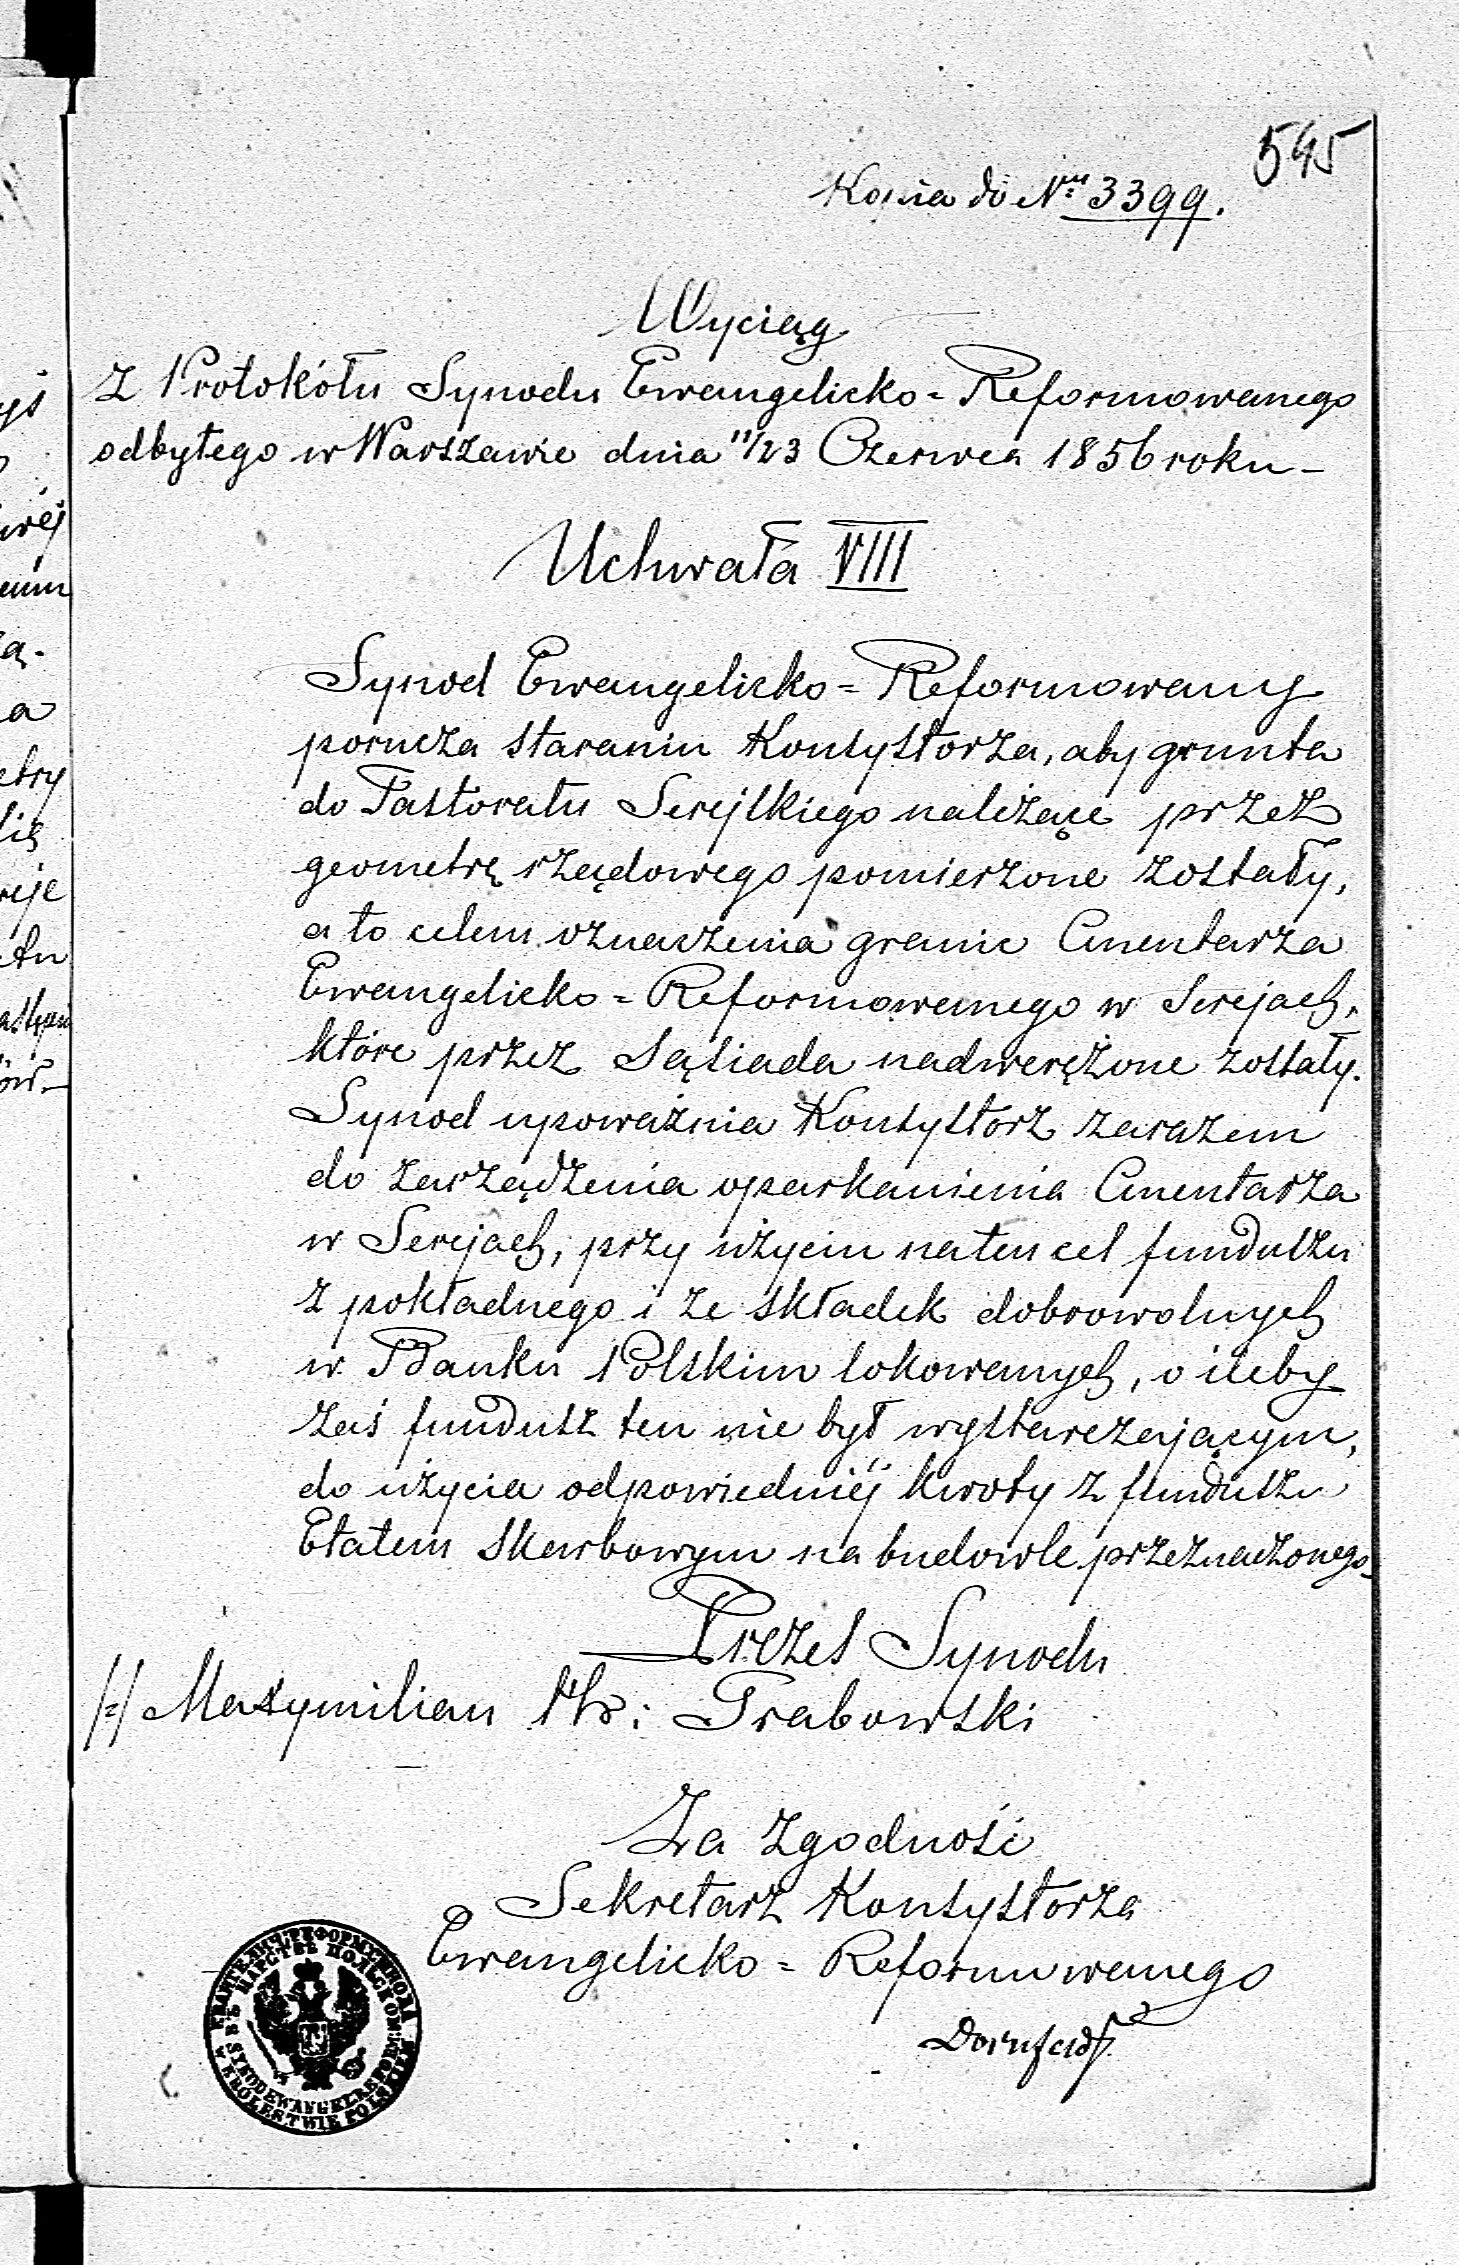 545
Kopia do Nru 3399.
Wyciąg
z Protokółu Synodu Ewangelicko=Reformowanego
odbytego w Warszawie dnia 11/23 Czerwca 1856 roku –
Uchwała VIII
Synod Ewangelicko=Reformowany
porucza staraniu Konsystorza, aby grunta
do Pastoratu Serejskiego należące przez
geometrę rządowego pomierzone zostały,
a to celem oznaczenia granic Cmentarza
Ewangelicko=Reformowanego w Serejach,
które przez sąsiada nadwerężone zostały.
Synod upoważnia Konsystorz zarazem
do zarządzenia oparkanienia Cmentarza
w Serejach, przy użyciu na ten cel funduszu
z pokładnego i ze składek dobrowolnych
w Banku Polskim lokowanych, o ileby
zaś fundusz ten nie był wystarczającym,
do użycia odpowiedniéj kwoty z funduszu
Etatem Skarbowym na budowle przeznaczonego–
Prezes Synodu
/=/ Maxymilian Hr: Grabowski
Za zgodność
Sekretarz Konsystorza
Ewangelicko=Reformowanego
Dornfeld
ВЪ ЦАРСТВѢ ПОЛЬСКОМЪ
SYNOD EWANGEL. REFOR.
W KRÓLESTWIE POLSKIEM
yś
wéj
emu
ą.
a
etry
reje
tu